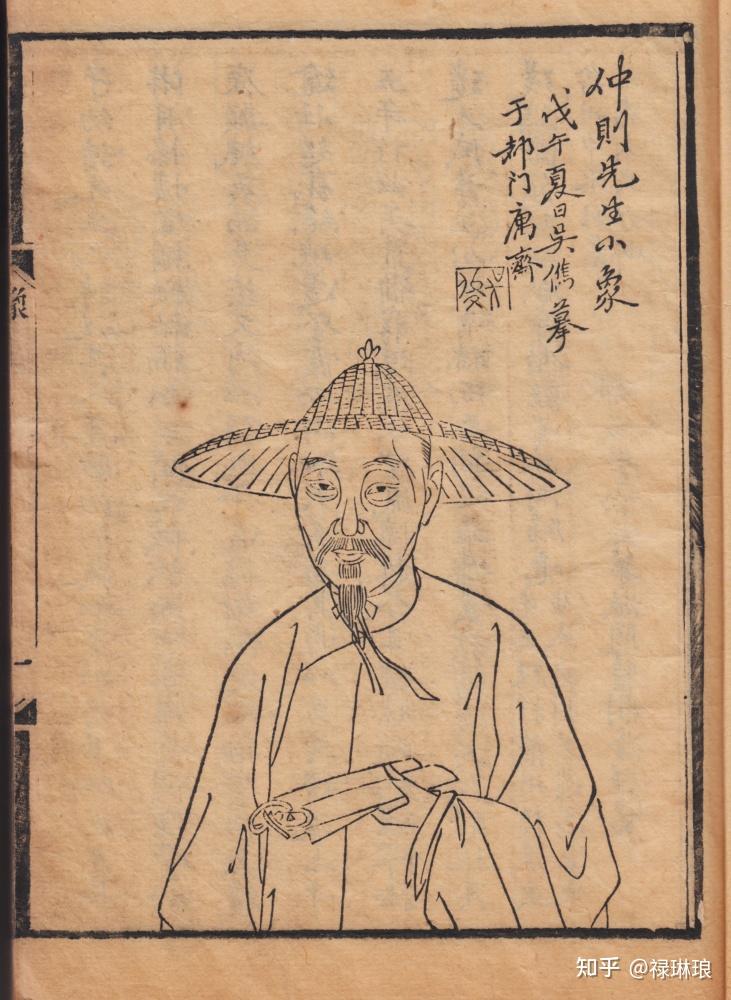 仲則先生小象
戊午夏日吳儁摹
于都门庸齋
象
一
知乎 @禄琳琅